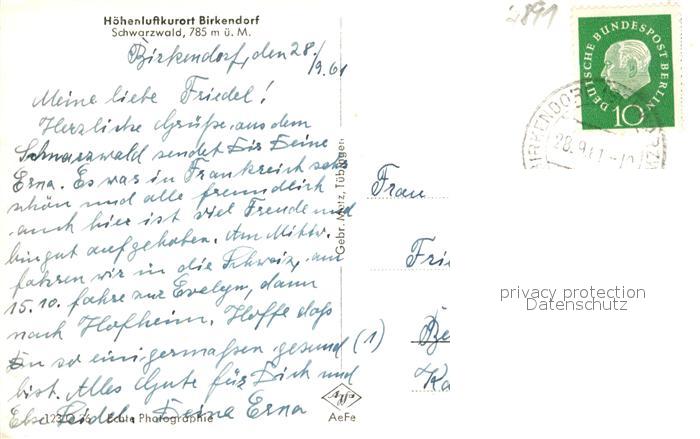 Höhenluftkurort Birkendorf
Schwarzwald, 785 m ü. M.
Birkendorf, den 28./9.61
Meine liebe Friedel!
Herzliche Grüße aus dem
Schwarzwald sendet Dir Deine
Erna. Es war in Frankreich sehr
schön und alle freundlich
auch hier ist viel Freude und
bin gut aufgehoben. Am Mittw.
fahren wir in die Schweiz, am
15.10. fahre zur Evelyn, dann
nach Hofheim. Hoffe daß
Du so einigermaßen gesund
bist. Alles Gute für Dich und
Deine Erna
123 Echte Photographie
Gebr. Metz, Tübingen
Agfa
AeFe
2891
DEUTSCHE BUNDESPOST BERLIN
10
BIRKENDORF
28.9.61
Frau
Frie
(1) Be
Ka
privacy protection
Datenschutz